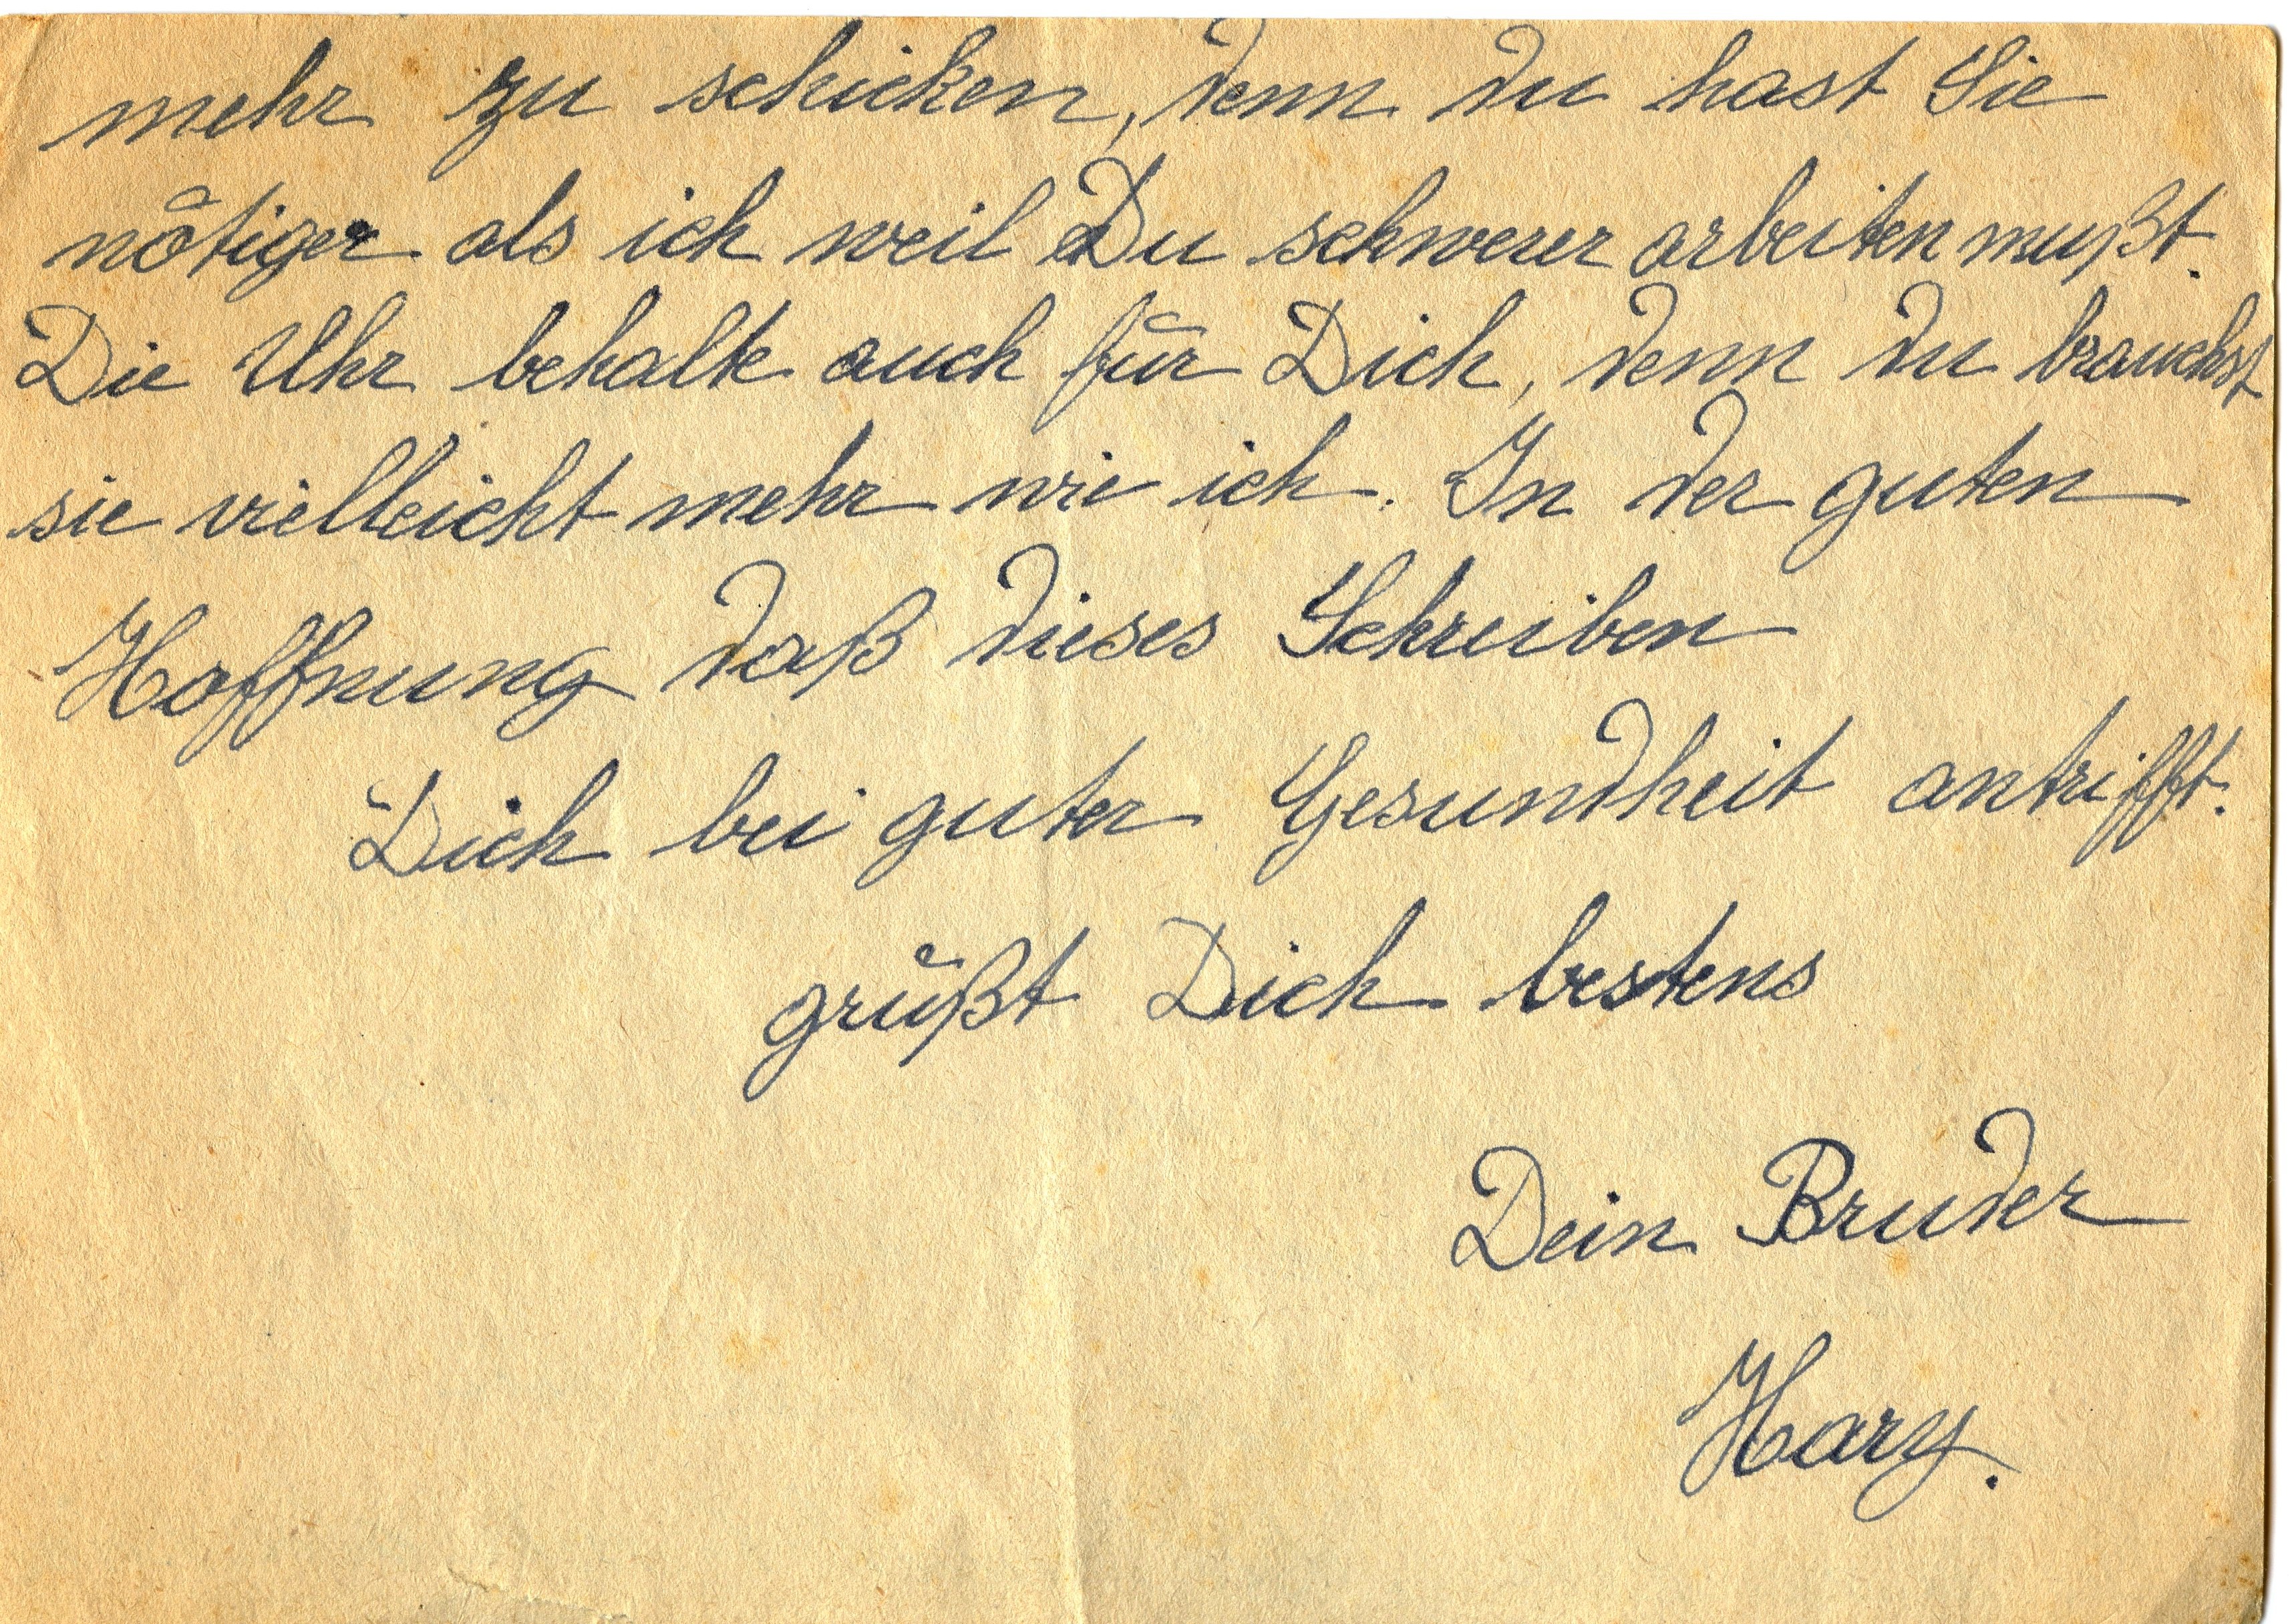 mehr zu schicken, denn du hast Sie
nötiger als ich weil Du schwerer arbeiten mußt.
Die Uhr behalte auch für Dich, denn du brauchst
sie vielleicht mehr wie ich. In der guten
Hoffnung daß dieses Schreiben
Dich bei guter Gesundheit antrifft.
grüßt Dich bestens
Dein Bruder
Hary.